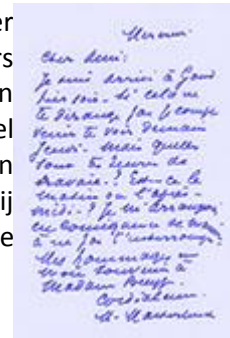 er
rs
n
el
n
ij
e
Cher ami:
Je suis arrivé à Gand
hier soir. Si cela ne
te dérange pas je compte
venir te voir demain
jeudi. Mais quelles
sont tes heures de
travail? Est-ce le
matin ou l'après-
midi? Je m'arrangerai
en conséquence de
à ne pas t'interrompre
Mes hommages
souvenir à
Madame
M. Maeterlinck